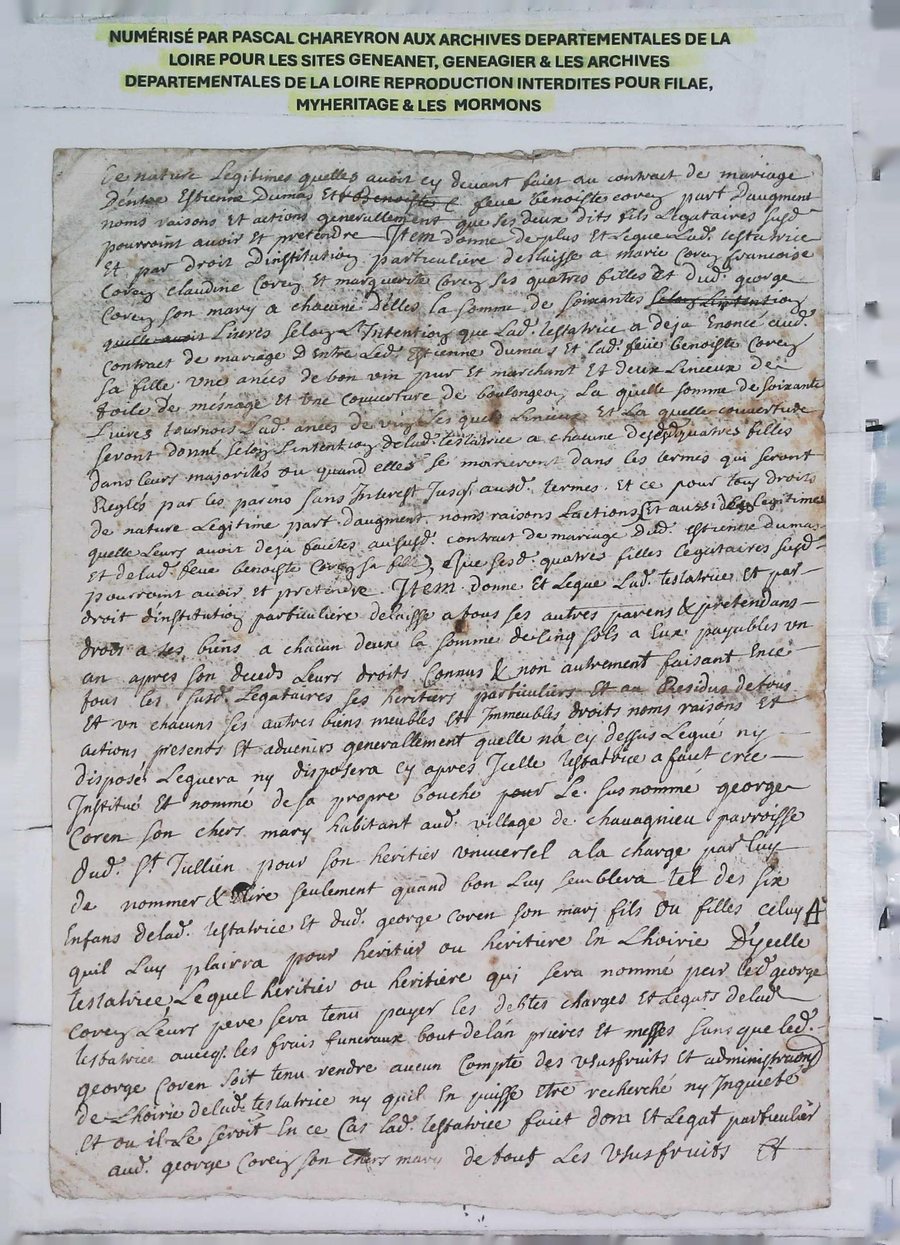 NUMÉRISÉ PAR PASCAL CHAREYRON AUX ARCHIVES DEPARTEMENTALES DE LA
LOIRE POUR LES SITES GENEANET, GENEAGIER & LES ARCHIVES
DEPARTEMENTALES DE LA LOIRE REPRODUCTION INTERDITES POUR FILAE,
MYHERITAGE & LES MORMONS
De nature Legitimes quelles avoit cy devant faict au contract de mariage
D'entre Estienne Dumas Et feue benoiste coren part d'augment
noms raisons Et actions generallement que ses deux dits fils Legataires susd.
pourroint avoir Et pretendre Item donne de plus Et Legue Lad. testatrice
Et par droit D'institution particuliere delaisse a marie Coren francoise
Coren claudine Coren Et marguerite Coren ses quatres filles Et dud. george
Coren son mary a chacune D'elles la somme de soixantes selon L'intention
quelle avoit Livres selon L'Intention que Lad. testatrice a deja Enoncé aud.
Contract de mariage D'Entre Led. Estienne dumas Et lad. feue benoiste Coren
sa fille. Une anées de bon vin pur Et marchant Et deux Linceux de
toile de mésnage Et Une Couverture de boulongeon La quelle somme de soixante
Livres tournois Lad. anées de vin Les quels Linceux Et La quelle couverture
seront donné selon L'intention de lad. testatrice a chacune desd. quatres filles
dans leurs majorités ou quand elles se marieront dans les termes qui seront
Reglés par les parens sans Interest Jusq. ausd. termes. Et ce pour tous droits
de nature Legitime part d'augment noms raisons actions Et aussi Legitime
quelle Leurs avoit deja faictes au susd. contract de mariage dud. Estienne dumas
Et de lad. feue benoiste Coren sa fille, Que sesd. quatres filles Legataires susd.
pourroint avoir Et pretendre Item donne Et Legue Lad. testatrice Et par
droit d'institution particuliere delaisse a tous ses autres parens & pretendans
droit a ses biens a chacun deux la somme de Cinq sols a Eux payables un
an apres son deceds Leurs droits Connus & non autrement faisant En ce
tous les susd. Legataires ses heritiers particuliers Et au Residus de tous
Et un chacuns ses autres biens meubles Et Immeubles droits noms raisons Et
actions presents Et advenirs generallement quelle na cy dessus Legué ny
disposé Leguera ny disposera cy apres Icelle testatrice a faict cree
Institué Et nommé de sa propre bouche pour Le susnommé george
Coren son chers mary habitant aud. village de chavagnieu parroisse
dud. St Jullien pour son heritier universel a la charge par Luy
de nommer & Elire seulement quand bon Luy semblera tel des six
Enfans de lad. testatrice Et dud. george Coren son mary fils ou filles celuy
quil Luy plairra pour heritier ou heritiere En L'hoirie D'ycelle
testatrice, Lequel heritier ou heritiere qui sera nommé par led. george
Coren Leurs pere sera tenu payer les debtes charges Et Legats de lad.
testatrice avecq. les frais funeraux bout de lan prieres Et messes sans que led.
george Coren soit tenu rendre aucun Compte des Ususfruits Et administrations
de L'hoirie de lad. testatrice ny quil En puisse Etre recherché ny Inquieté
Et ou il Le seroit En ce Cas lad. testatrice faict don Et Legat particulier
aud. george Coren son chers mary de tout Les Ususfruits Et